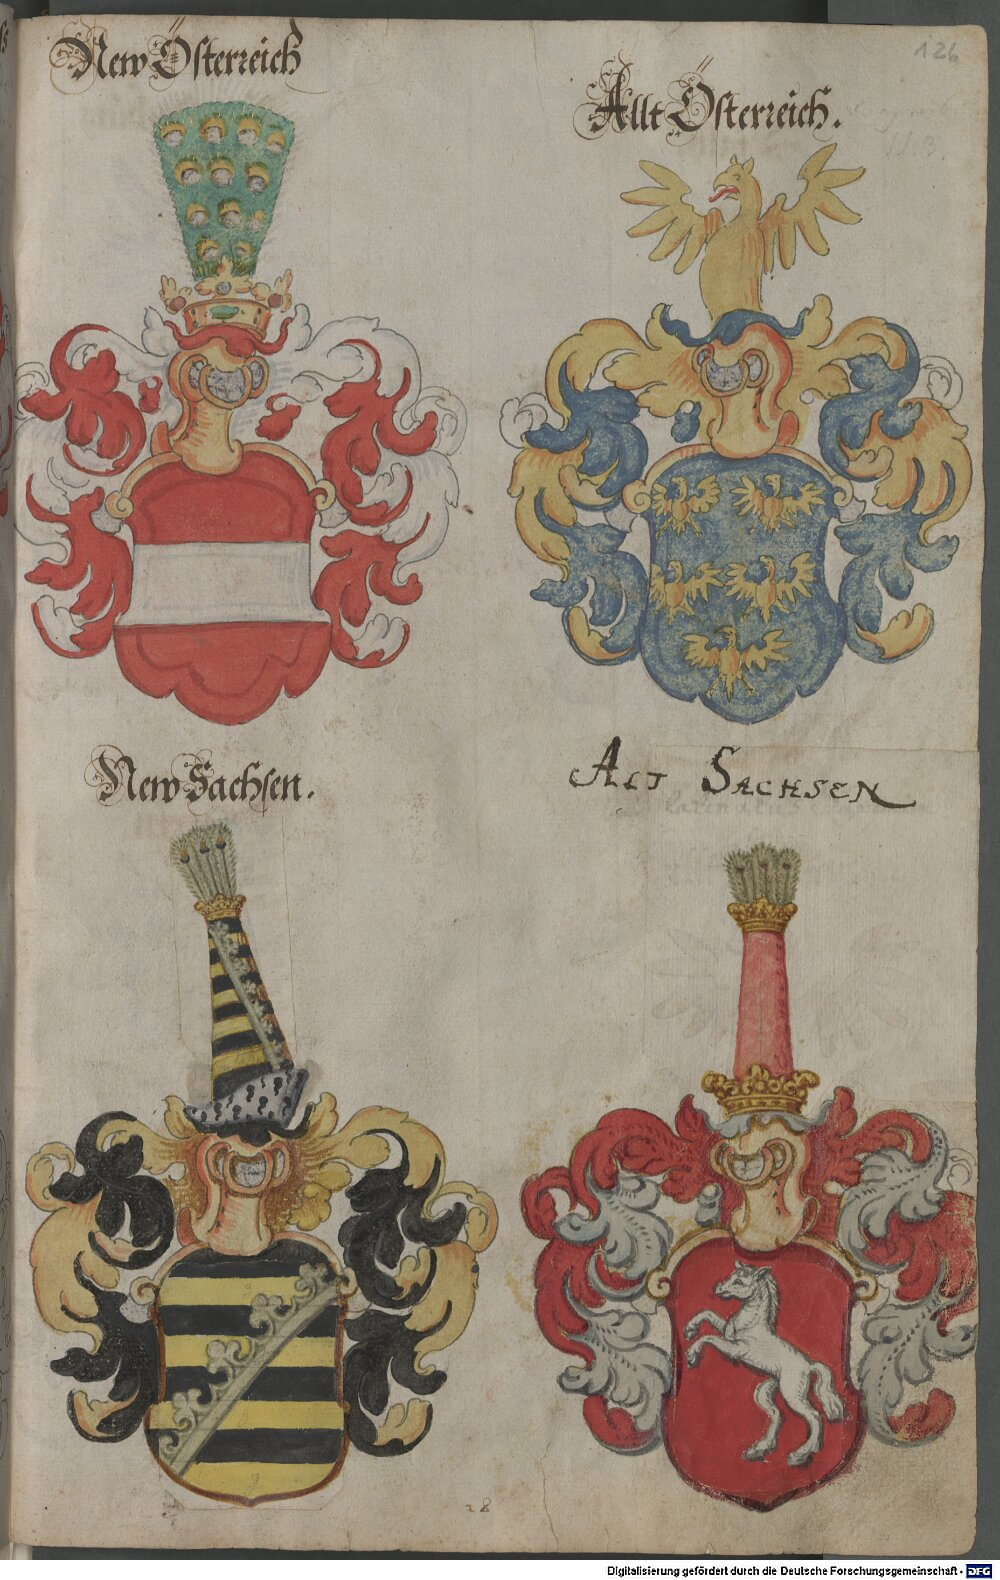 New Österreich
Allt Österreich.
126
New Sachsen.
Alt Sachsen
28
Digitalisierung gefördert durch die Deutsche Forschungsgemeinschaft - DFG